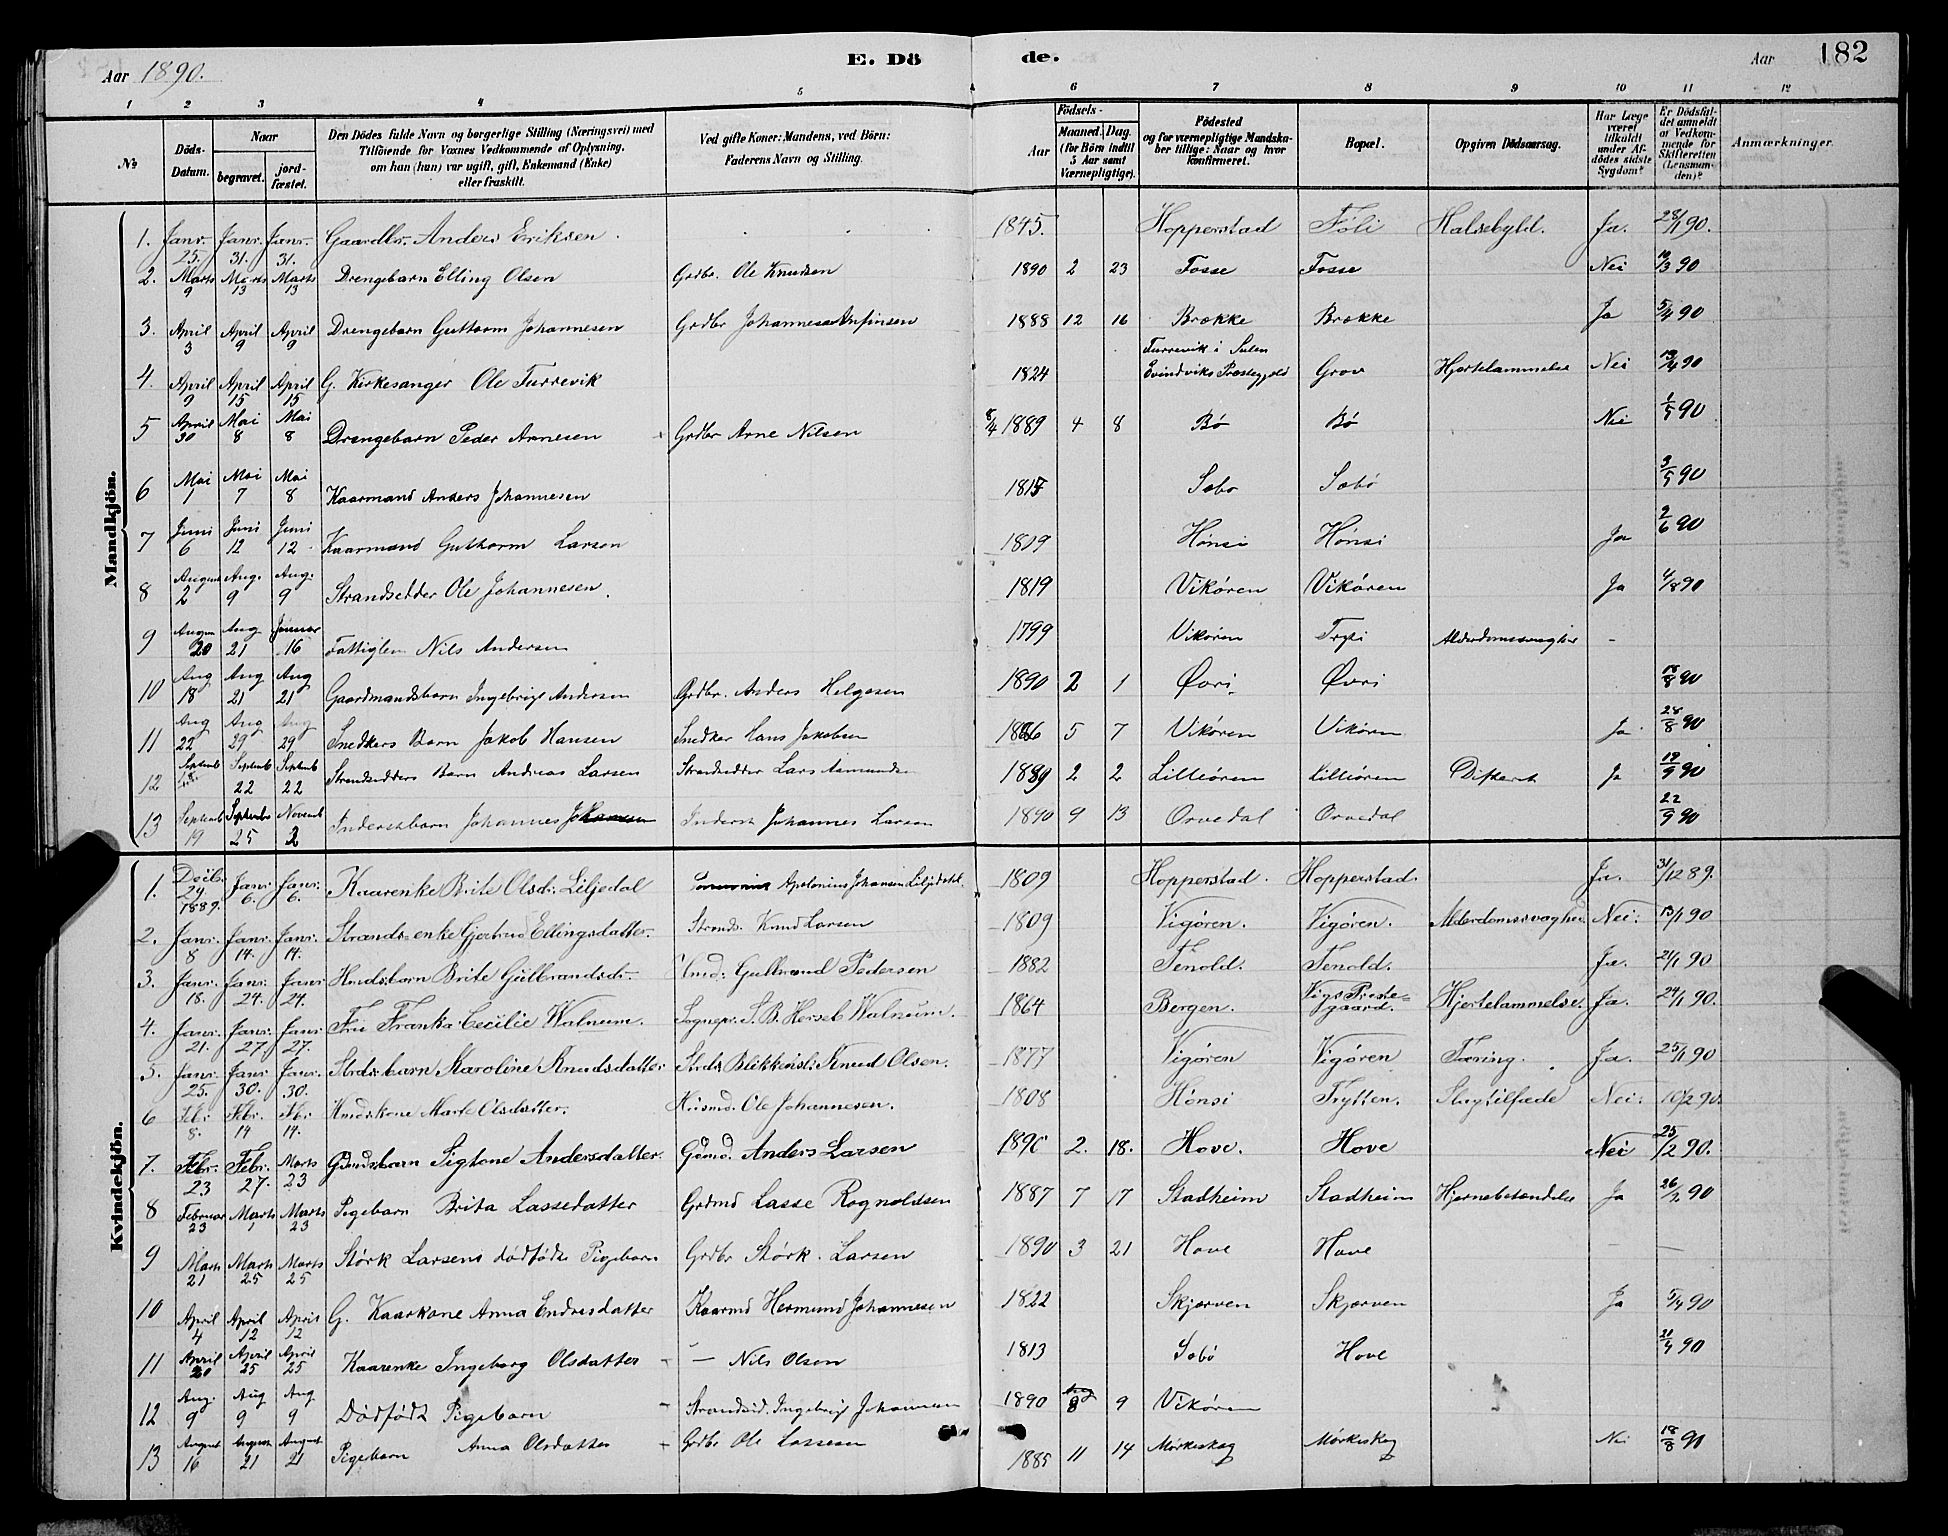 Aar 1890. E. Dö de. Aar 182
1 2 3 4 5 6 7 8 9 10 11 12
№ Döds-Datum. Naar begravet. jordfæstet. Den Dödes fulde Navn og borgerlige Stilling (Næringsvei) med Tilföiende for Voxnes Vedkommende af Oplysning, om han (hun) var ugift, gift, Enkemand (Enke) eller fraskilt. Ved gifte Koner: Mandens, ved Börn: Faderens Navn og Stilling. Aar Födsels- Maaned. Dag. (for Börn indtil 5 Aar samt Værnepligtige). Födested og for værnepligtige Mandskaber tillige: Naar og hvor konfirmeret. Bopæl. Opgiven Dödsaarsag. Har Læge været tilkaldt under Afdödes sidste Sygdom? Er Dödsfaldet anmeldt af Vedkommende for Skifteretten (Lensmanden)? Anmærkninger.
Mandkjön.
1. Janr. 25. Janr. 31. Janr. 31. Gaardbr. Anders Eriksen. 1845. Hopperstad Föli Halsebyld. Ja. 28/1 90.
2. Marts 9 Marts 13 Marts 13 Drengebarn Elling Olsen Grdbr. Ole Knudsen 1890 2 23 Fosse Fosse Nei 10/3 90
3. April 3 April 9 April 9 Drengebarn Guttorm Johannesen Grdbr Johannes Anfinsen 1888 12 16 Brække Brække Ja 5/4 90
4. April 9 April 15 April 15 G. Kirkesanger Ole Turrevik 1824 Turrevik i Sulen Evindviks Præstegjeld Grov Hjertelammelse Nei 13/4 90
5 April 30 Mai 8 Mai 8 Drengebarn Peder Arnesen Grdbr Arne Nilsen 8/4 1889 4 8 Bö Bö Nei 1/5 90
6 Mai 1 Mai 7 Mai 8 Kaarmand Anders Johannesen Sæbo Sæbö 3/5 90
7 Juni 6 Juni 12 Juni 12 Kaarmand Guttorm Larsen 1819 Hönsi Hönsi Ja 2/6 90
8 August 2 Aug. 9 Aug. 9 Strandsidder Ole Johannesen. 1819 Vikören Vikören Ja 4/8 90
9 August 20 Aug 21 Januar 16 Fattiglem Nils Andersen 1799 Vikören Tryti Alderdomssvaghed -
10 Aug 18 Aug 21 Aug 21 Gaardmandsbarn Ingebrigt Andersen Grdbr. Anders Helgesen 1890 2 1 Övri Övri 18/8 90
11 Aug 22 Aug 29 Aug 29 Snedkers Barn Jakob Hansen Snedker Hans Jakobsen 5 7 Vikören Vikören Ja 28/8 90
12 Septemb 18. Septemb 22 Septemb 22 Strandsidders Barn Andreas Larsen Strandsidder Lars Asmundsen 1889 2 2 Lilleören Lilleören Difterit Ja 19/9 90
13 Septemb 19 Septembr 25 Novemb 2 Inderstbarn Johannes Johannesen Inderst Johannes Larsen 1890 9 13 Orvedal Orvedal 22/9 90
Kvindekjön.
1. Decb. 24. 1889. Janr. 6. Janr. 6. Kaarenke Brite Olsdr. Liljedal Apolonius Johansen Liljedahl. 1809 Hopperstad. Hopperstad. Ja. 31/12 89.
2. Janr. 8 Janr. 14. Janr. 14. Strandsenke Gjertrud Ellingsdatter. Strands. Knud Larsen 1809 Vigören. Vigören. Alderdomssvaghed. Nei. 13/1 90
3. Janr. 18. Janr. 24. Janr. 24. Hmdsbarn Brite Gulbrandsdr. Hmd. Gulbrand Pedersen 1882 Tenold. Tenold. Ja. 21/1 90
4. Janr. 21. Janr. 27. Janr. 27. Fru Franka Cecilie Walnum. Sognepr. S. B. Hersleb Walnum. 1864 Bergen. Vigs Præstegaard. Hjertelammelse. Ja. 24/1 90.
5. Janr. 25. Janr. 30. Janr. 30. Strdsbarn Karoline Knudsdatter Strds. Blikkensl. Knud Olsen. 1877 Vigören Vigören Tæring. Ja. 25/1 90
6 Febr. 8. Febr. 14 Febr. 14. Hmdskone Marte Olsdatter. Husmd. Ole Johannesen. 1808 Hönsi Trytten. Slagtilfæde Nei. 10/2 90.
7. Febr. 23 Febr. 27. Marts 23 Gdmdsbarn Sigtone Andersdatter. Gdmd. Anders Larsen 1890 2. 18. Hove. Hove Nei 25/2 90.
8 Februar 23 Marts 1 Marts 23 Pigebarn Brita Lassedatter Grdmd Lasse Rognaldsen 1887 7 17 Stadheim Stadheim Hjernebetændelse Ja 26/2 90
9 Marts 21 Marts 25 Marts 25 Störk Larsens dödfödte Pigebarn Grdbr Störk Larsen 1890 3 21 Hove Hove - -
10 April 4 April 12 April 12 G. Kaarkone Anna Endresdatter Kaarmd Hermund Johannesen 1822 Skjærven Skjærven Ja 5/4 90
11 April 20 April 25 April 25 Kaarenke Ingeborg Olsdatter - Nils Olsen 1813 Sæbö Hove 21/4 90
12 Aug. 9 Aug 9 Aug 9 Dödfödt Pigebarn Strandsid. Ingebrigt Johannesen 1890 8 9 Vikören
13 August 16 August 21 August 21 Pigebarn Anna Olsdatter Grdbr Ole Lassesen 1885 11 14 Mörkeskog Mörkeskog Nei 18/8 90